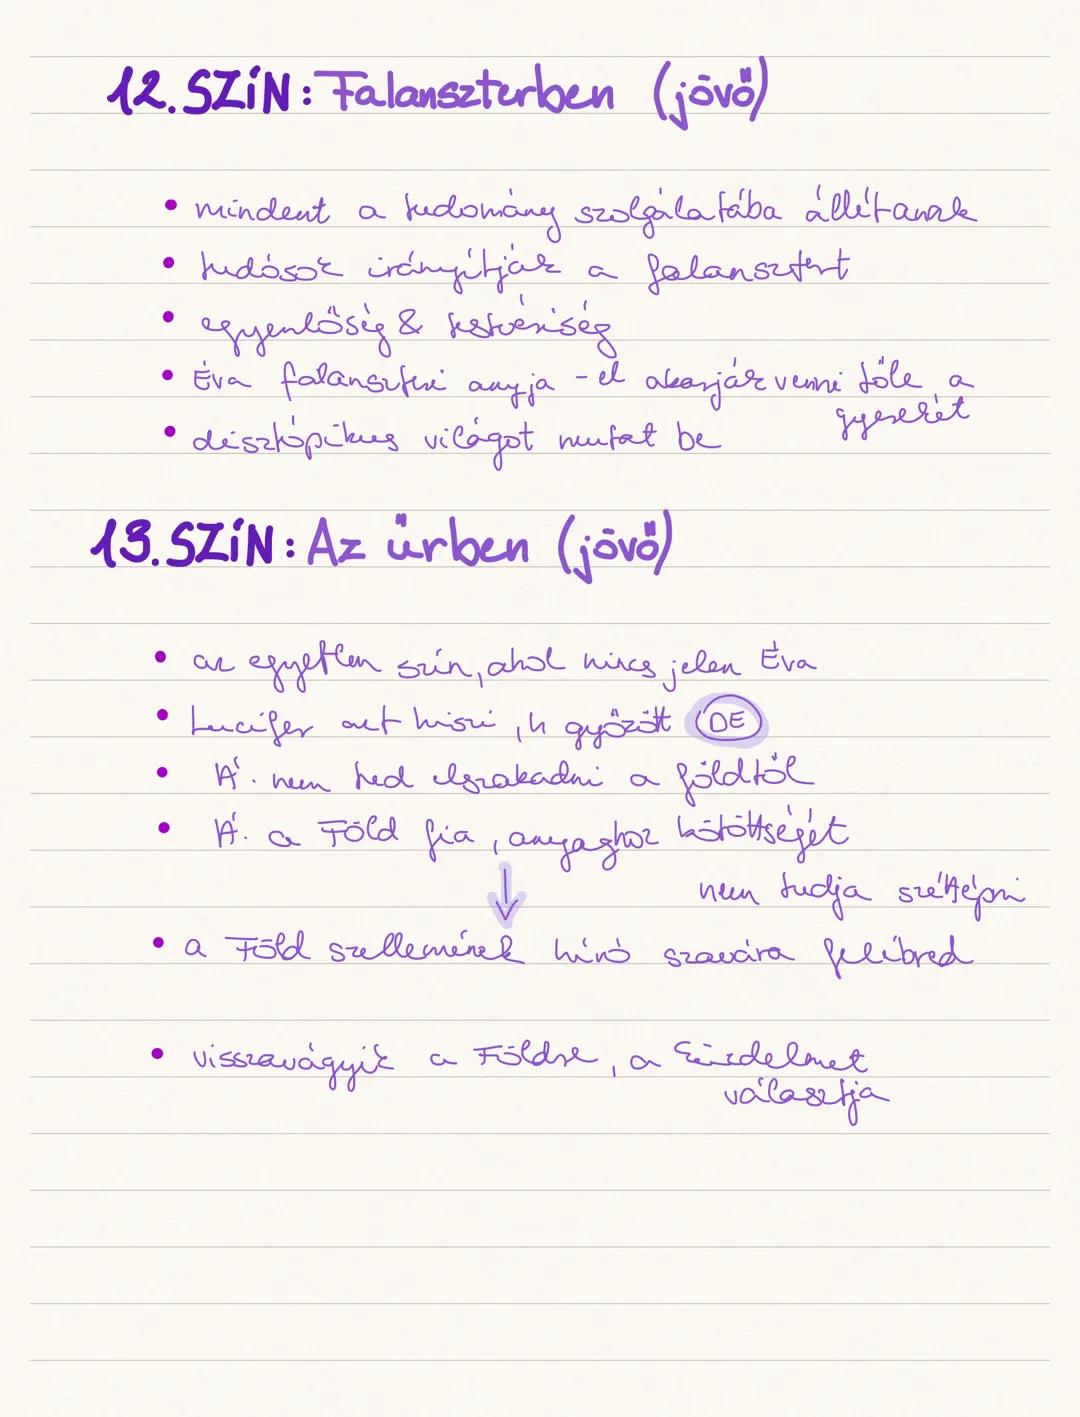 12. SZÍN: Falanszterben (jövő)
• mindent a tudomány szolgálatába állítanak
• tudósok irányítják a falansztert
• egyenlőség & testvériség
• Éva falanszteri anyja - el akarják venni tőle a
gyerekét
• disztópikus világot mutat be
13. SZÍN: Az űrben (jövő)
• az egyetlen szín, ahol nincs jelen Éva
• Lucifer azt hiszi, h győzött DE
• Á. nem tud elszakadni a földtől
• Á. a Föld fia, anyaghoz kötöttségét
nem tudja széttépni
↓
• a Föld szellemének hívó szavára felébred
• visszavágyik a Földre, a küzdelmet
választja